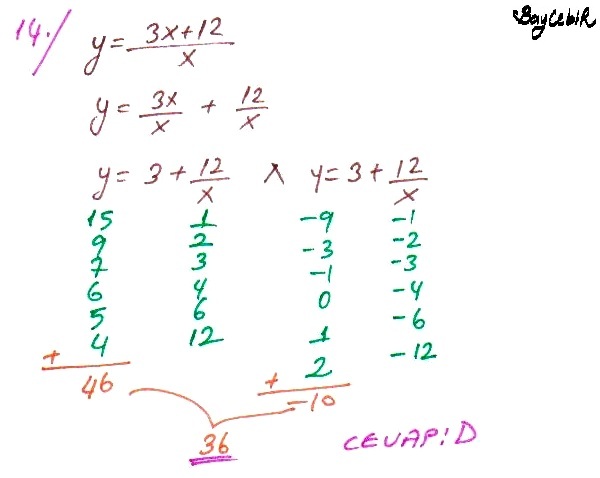 BayCebiR
14./ y = (3x+12)/x
y = 3x/x + 12/x
y = 3 + 12/x ∧ y = 3 + 12/x
15 1 -9 -1
9 2 -3 -2
7 3 -1 -3
6 4 0 -4
5 6 1 -6
+ 4 12 + 2 -12
46 -10
36 CEVAP: D